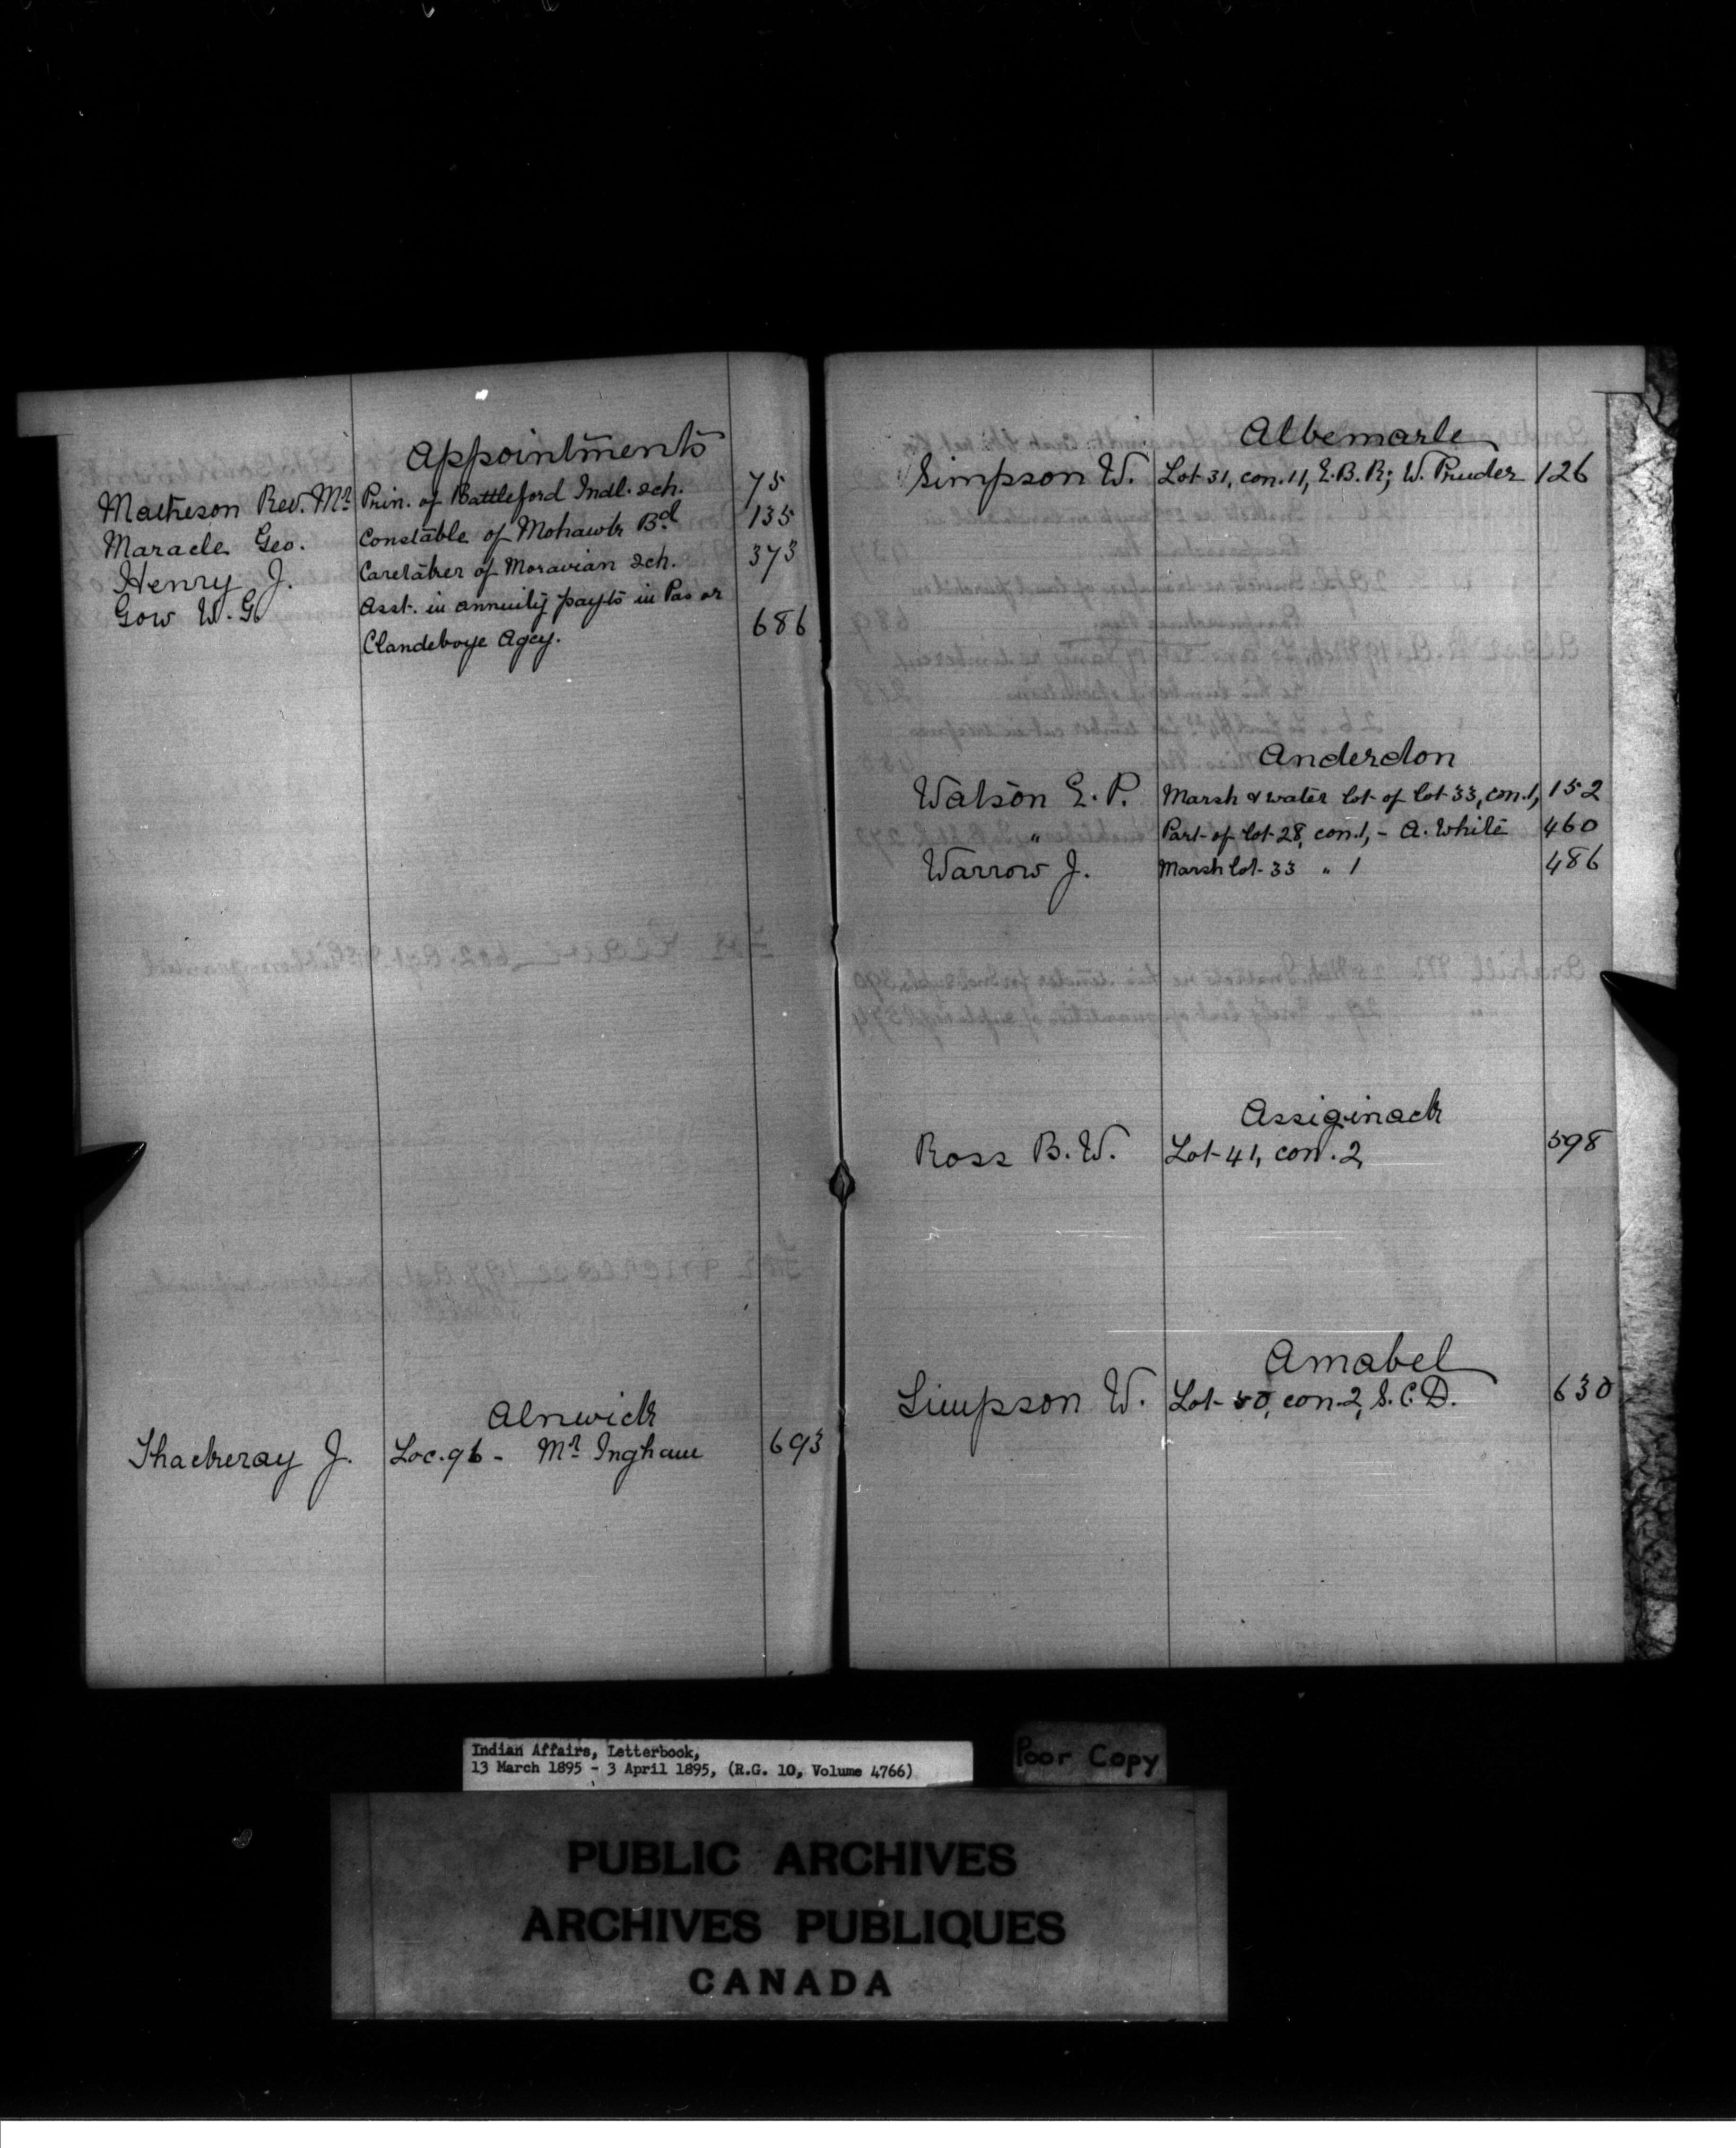 Appointments
Matheson Rev. Mr Prin. of Battleford Indl. sch. 75
Maracle Geo. Constable of Mohawk Bd 135
Henry J. Caretaker of Moravian sch. 373
Gow W. G. Asst. in annuity payts in Pas or
Clandeboye Agcy. 686
Alnwick
Thackeray J. Loc. 96 - Mr Ingham 693
Albemarle
Simpson W. Lot 31, con. 11, E.B.R; W. Pruder 126
Anderdon
Watson E. P. Marsh & water lot of lot 33, con. 1, 152
" Part of lot 28, con. 1, - A. White 460
Warrow J. Marsh lot 33 " 1 486
Assiginack
Ross B. W. Lot 41, con. 2 598
Amabel
Simpson W. Lot 50, con. 2, S.C.D. 630
Indian Affairs, Letterbook,
13 March 1895 - 3 April 1895, (R.G. 10, Volume 4766)
Poor Copy
PUBLIC ARCHIVES
ARCHIVES PUBLIQUES
CANADA